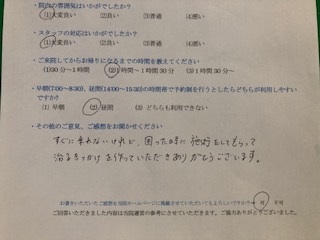 ・院内の雰囲気はいかがでしたか？
(1)大変良い (2)良い (3)普通 (4)悪い
・スタッフの対応はいかがでしたか？
(1)大変良い (2)良い (3)普通 (4)悪い
・ご来院してからお帰りになるまでの時間を教えてください
(1)30分〜1時間 (2)1時間〜1時間30分 (3)1時間30分〜
・早朝(7:00〜8:30)、昼間(14:00〜15:30)の時間帯で予約制を行うとしたらどちらが利用しやすいですか？
(1) 早朝 (2) 昼間 (3) どちらも利用できない
・その他のご意見、ご感想をお聞かせください
すぐに来れないけれど、困った時に施術をしてもらって
治るきっかけを作っていただきありがとうございます。
お書きいただいたご感想を当院ホームページに掲載させていただいてもよろしいですか？→ 可 不可
ご回答いただきました内容は当院運営の参考にさせていただきます。ご協力ありがとうございました。